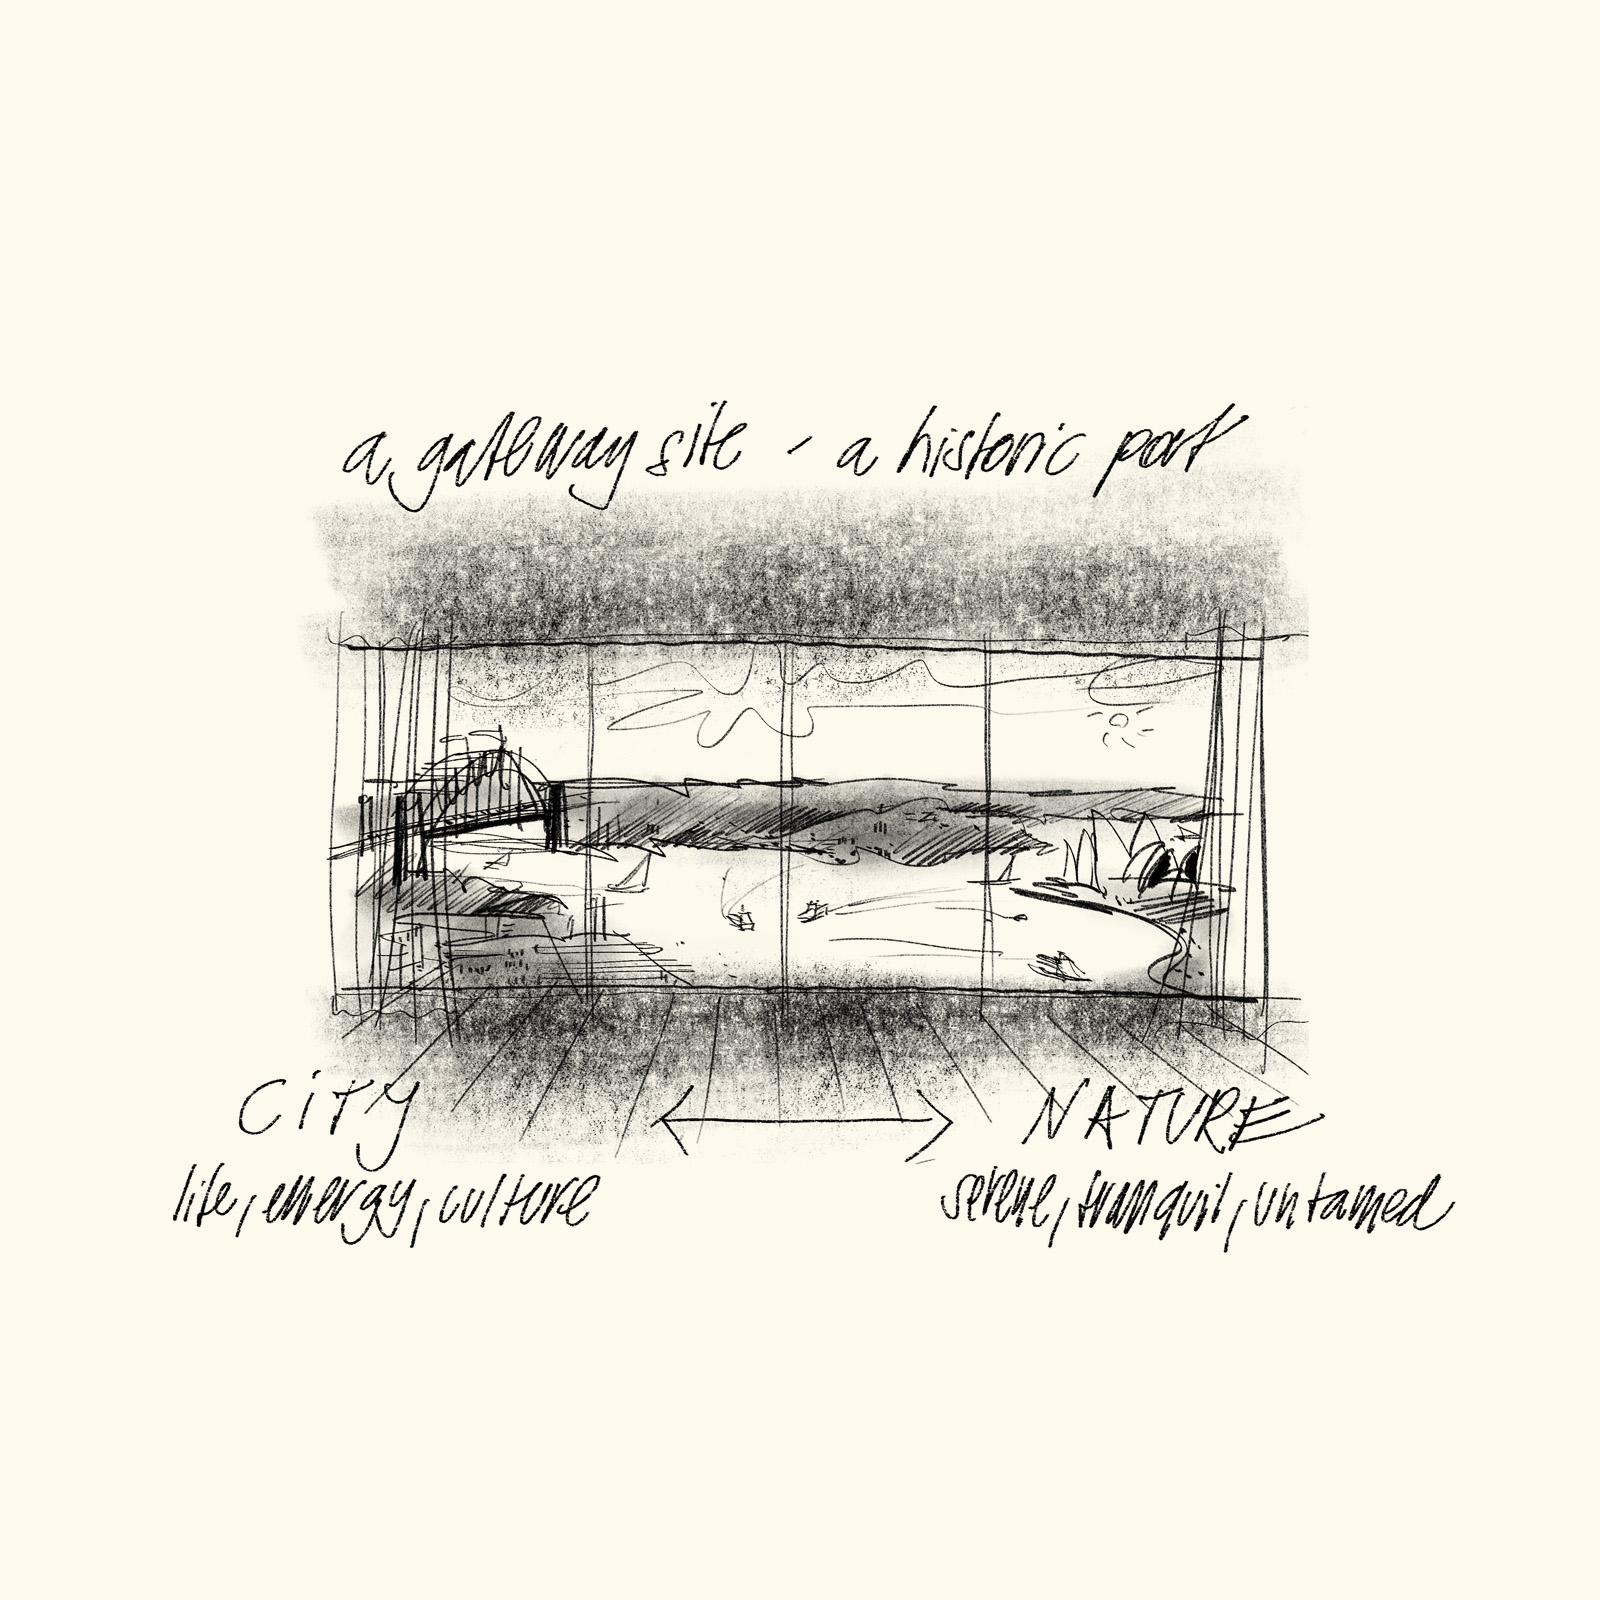 a gateway site - a historic port
CiTY NATURE
life, energy, culture serene, tranquil, untamed